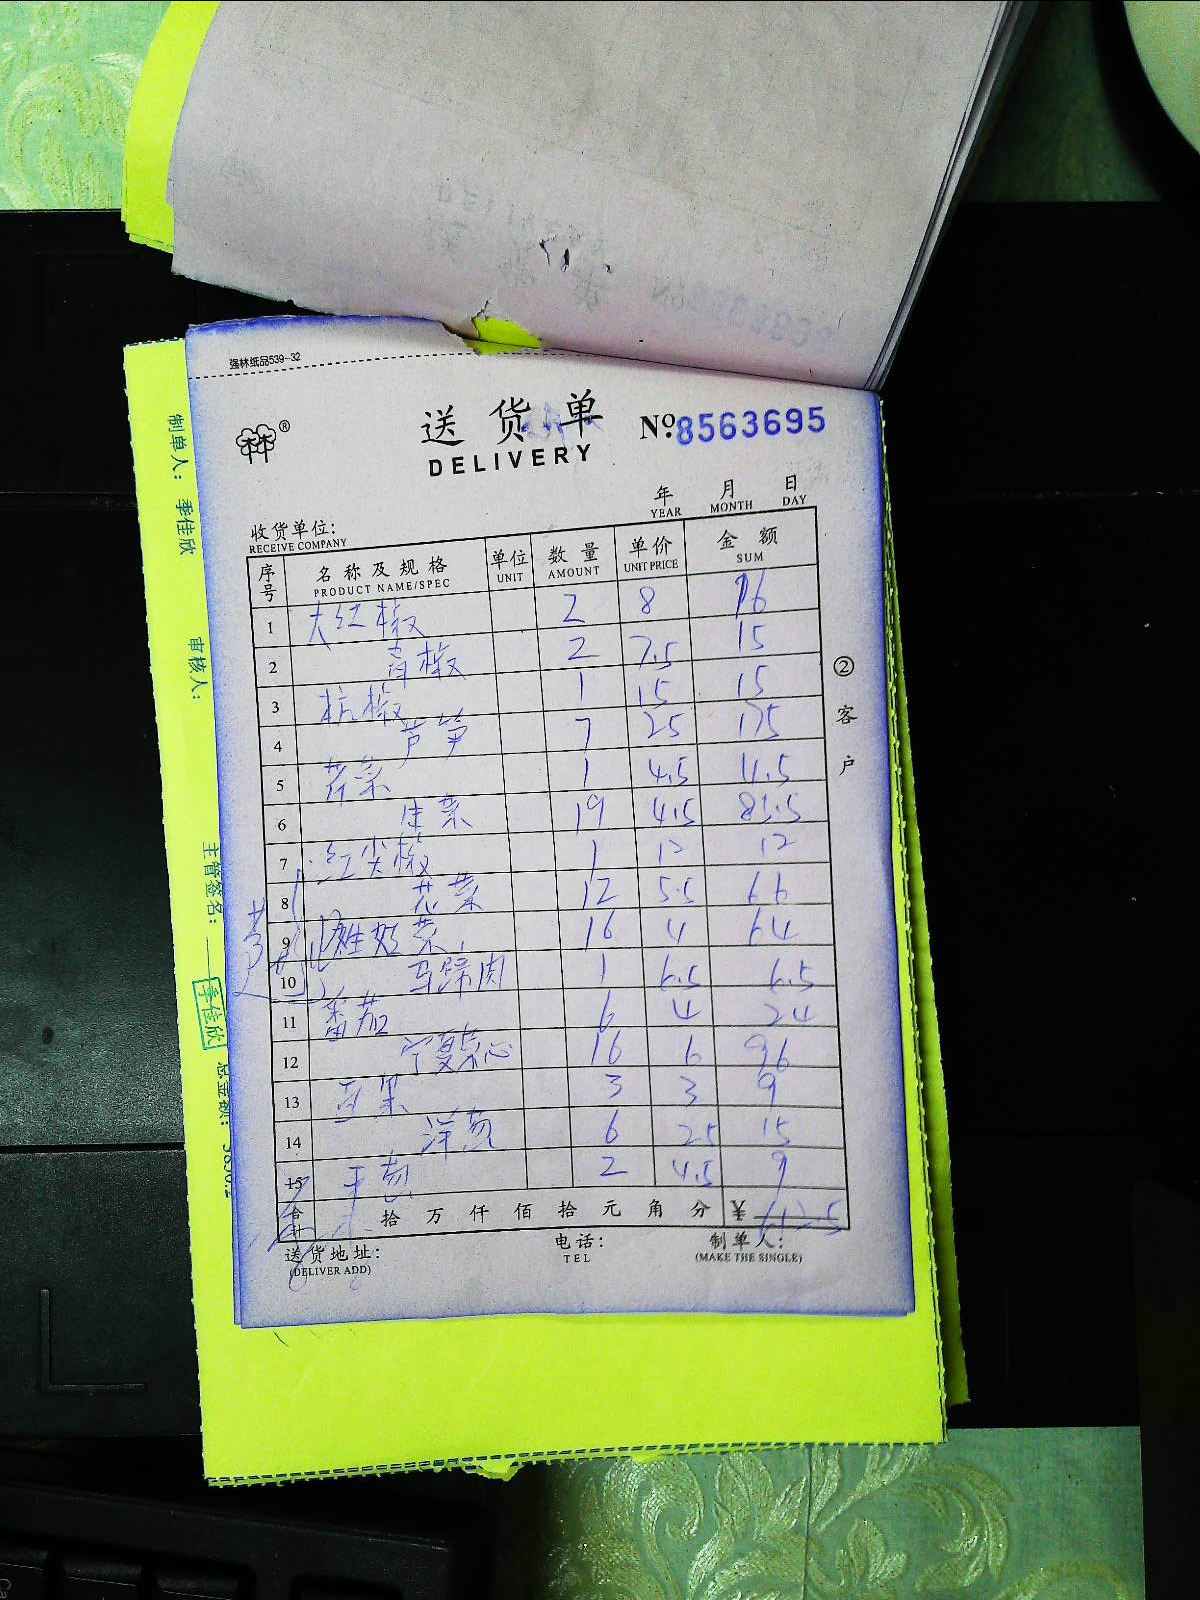 强林纸品539-32
林®
送货单 №8563695
DELIVERY
年 月 日
YEAR MONTH DAY
收货单位:
RECEIVE COMPANY
序号 名称及规格 单位 数量 单价 金额
PRODUCT NAME/SPEC UNIT AMOUNT UNIT PRICE SUM
1 大红椒 2 8 16
2 青椒 2 7.5 15
3 杭椒 1 15 15
4 芦笋 7 25 175
5 芹菜 1 4.5 4.5
6 生菜 19 4.5 85.5
7 红尖椒 1 12 12
8 12 5.5 66
9 娃娃菜 16 4 64
10 马蹄肉 1 6.5 6.5
11 番茄 6 4 24
12 宁夏菜心 16 6 96
13 3 3 9
14 洋葱 6 25 15
15 2 4.5 9
合计 拾 万 仟 佰 拾 元 角 分 ¥ 612.5
送货地址: 电话: 制单人:
(DELIVER ADD) TEL (MAKE THE SINGLE)
②客户
制单人: 季佳欣
审核人:
主管签名:
季佳欣
总金额: